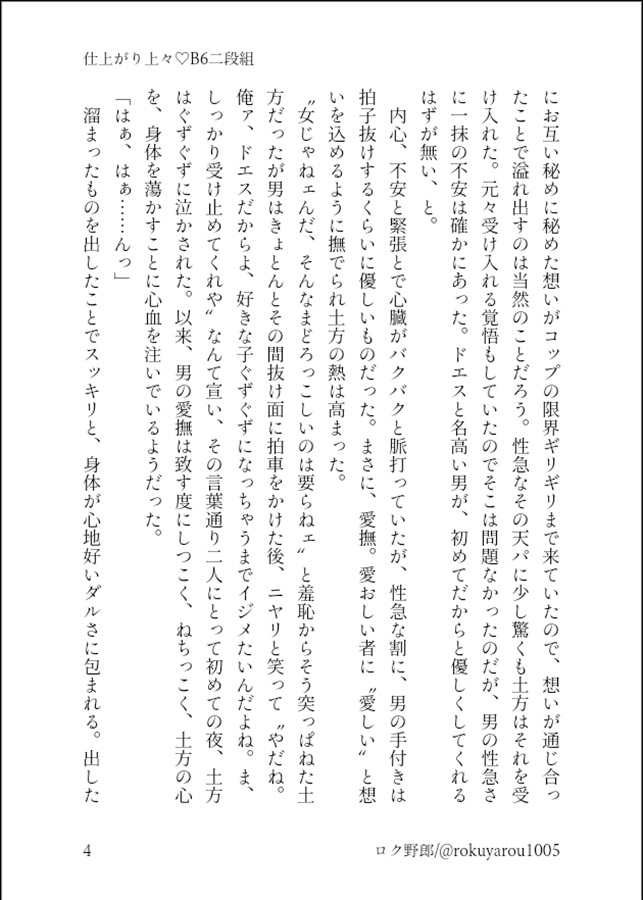 仕上がり上々♡B6二段組
にお互い秘めに秘めた想いがコップの限界ギリギリまで来ていたので、想いが通じ合っ
たことで溢れ出すのは当然のことだろう。性急なその天パに少し驚くも土方はそれを受
け入れた。元々受け入れる覚悟もしていたのでそこは問題なかったのだが、男の性急さ
に一抹の不安は確かにあった。ドエスと名高い男が、初めてだからと優しくしてくれる
はずが無い、と。
内心、不安と緊張とで心臓がバクバクと脈打っていたが、性急な割に、男の手付きは
拍子抜けするくらいに優しいものだった。まさに、愛撫。愛おしい者に〝愛しい〟と想
いを込めるように撫でられ土方の熱は高まった。
〝女じゃねェんだ、そんなまどろっこしいのは要らねェ〟と羞恥からそう突っぱねた土
方だったが男はきょとんとその間抜け面に拍車をかけた後、ニヤリと笑って〝やだね。
俺ァ、ドエスだからよ、好きな子ぐずぐずになっちゃうまでイジメたいんだよね。ま、
しっかり受け止めてくれや〟なんて宣い、その言葉通り二人にとって初めての夜、土方
はぐずぐずに泣かされた。以来、男の愛撫は致す度にしつこく、ねちっこく、土方の心
を、身体を蕩かすことに心血を注いでいるようだった。
「はぁ、はぁ……んっ」
溜まったものを出したことでスッキリと、身体が心地好いダルさに包まれる。出した
4
ロク野郎/@rokuyarou1005